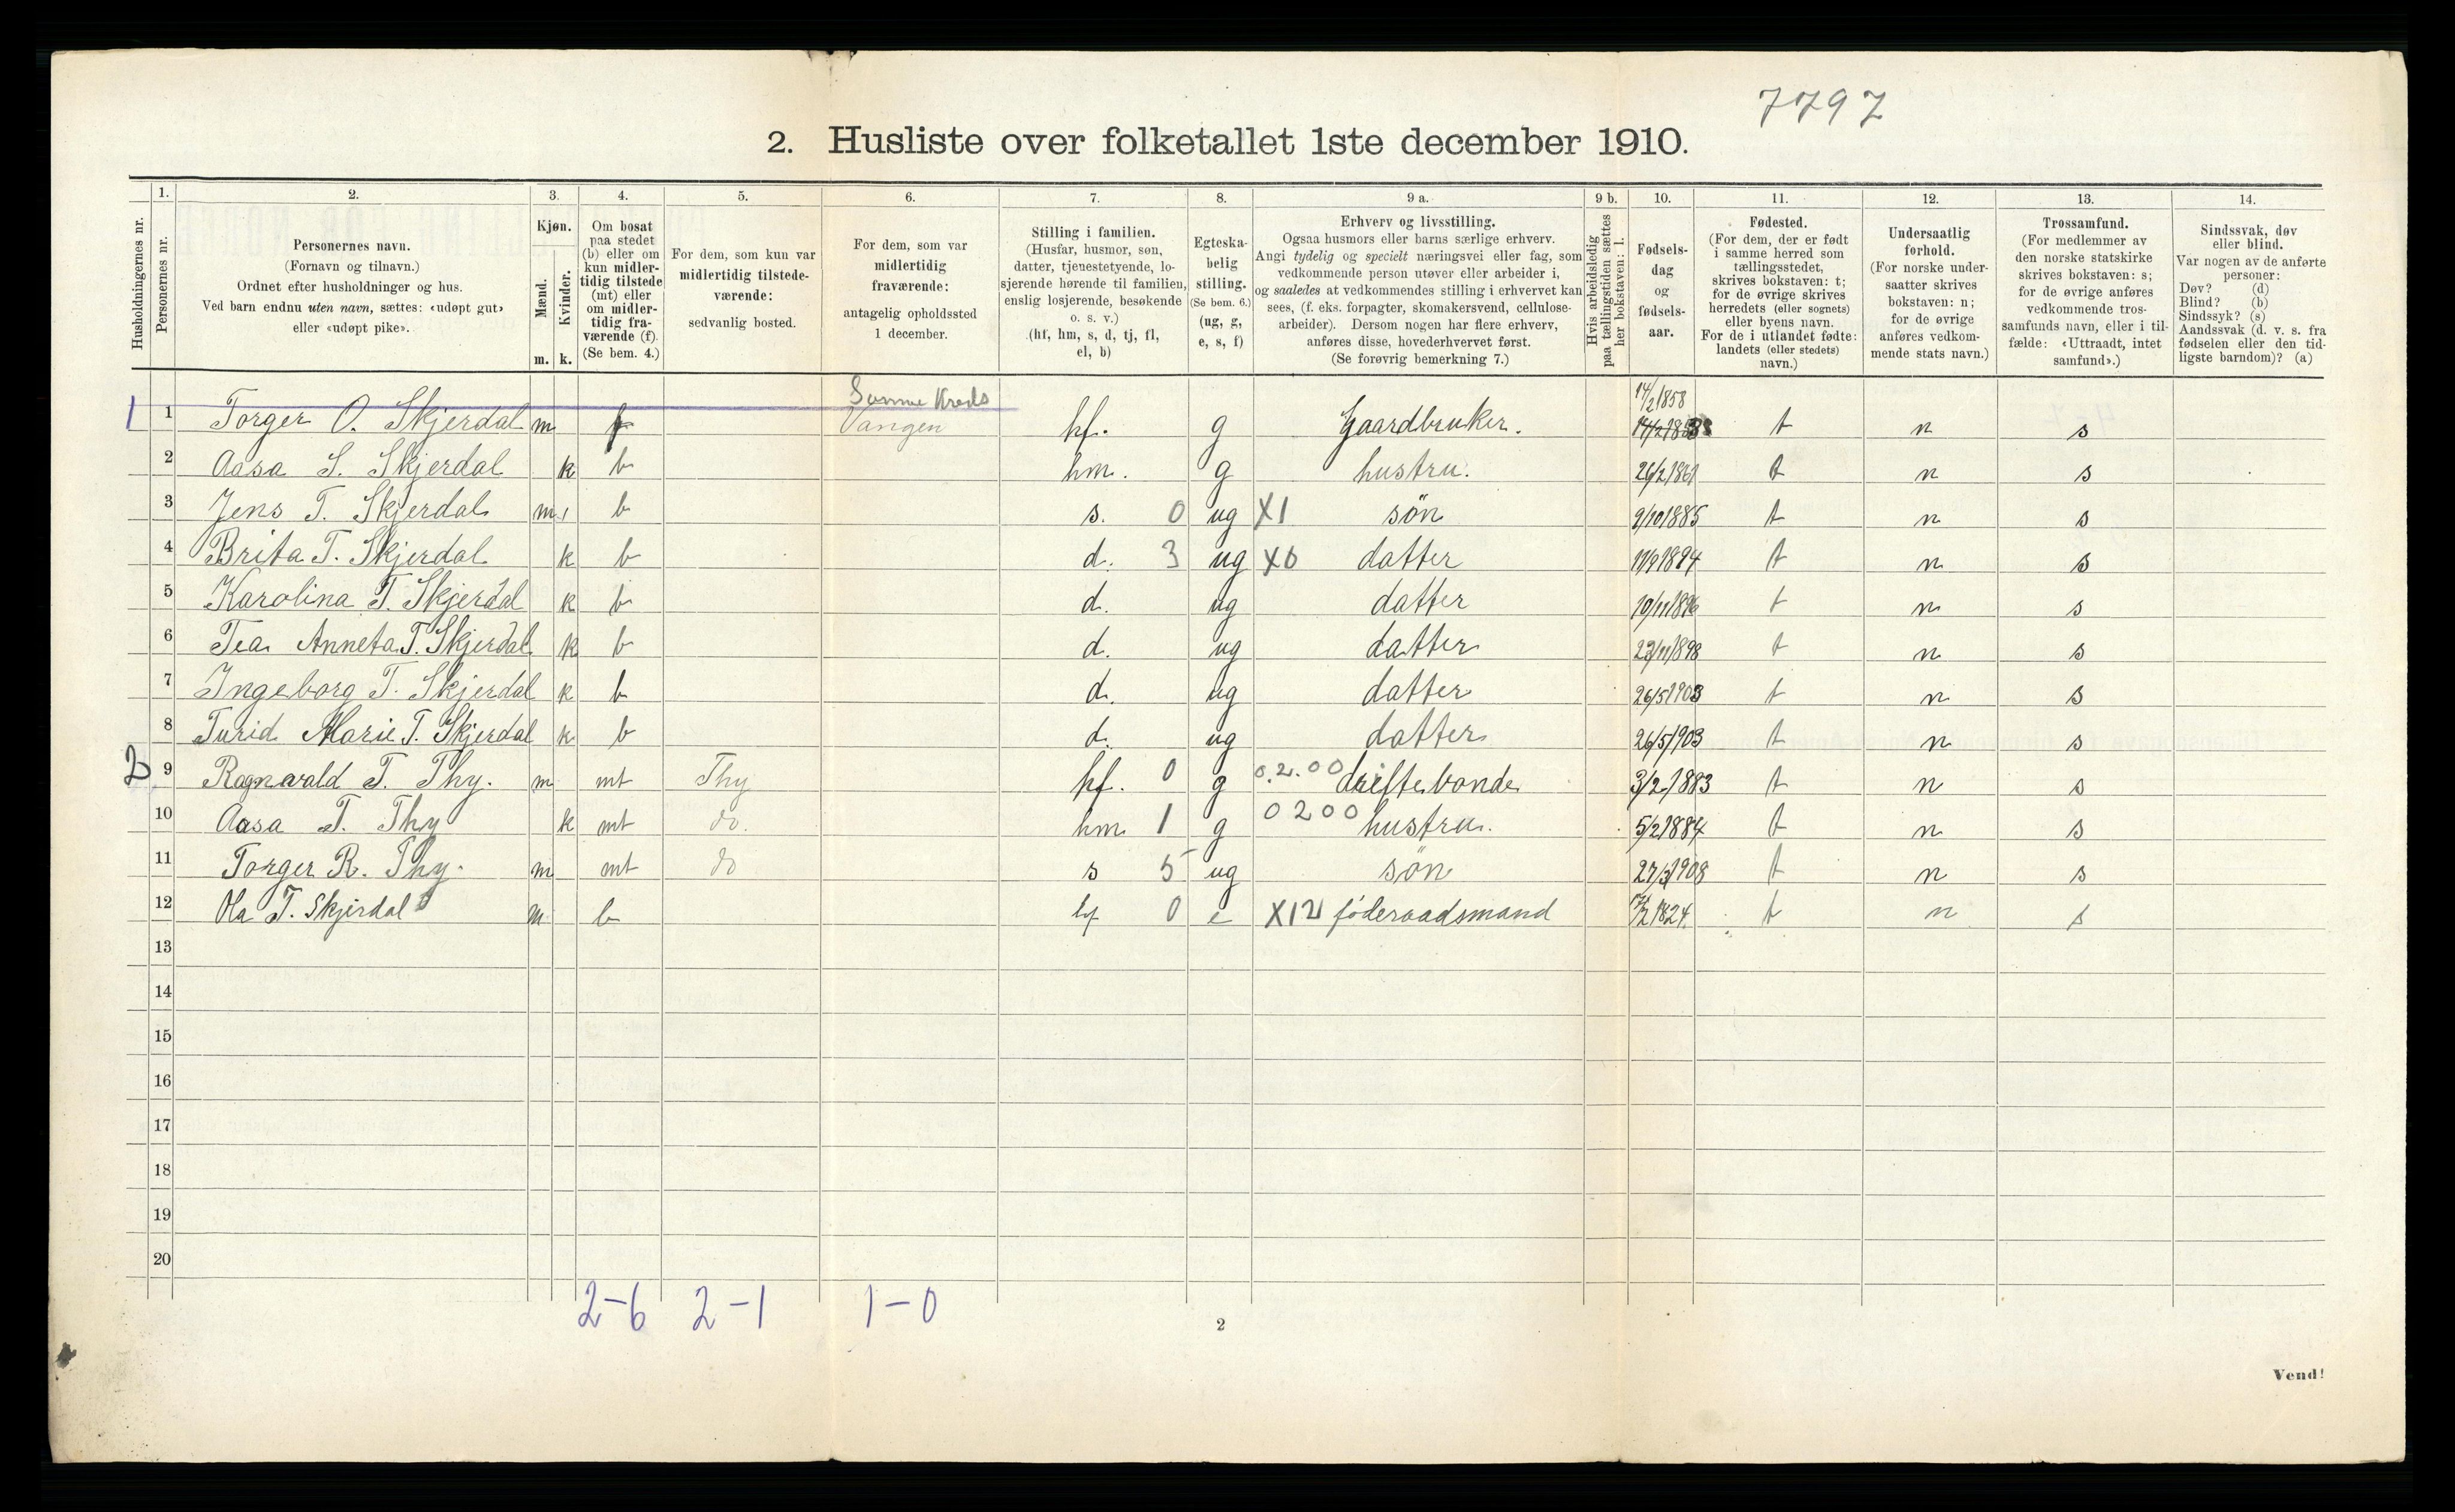 7797
2. Husliste over folketallet 1ste december 1910.
Husholdningernes nr.
1. Personernes nr.
2. Personernes navn. (Fornavn og tilnavn.) Ordnet efter husholdninger og hus. Ved barn endnu uten navn, sættes: «udøpt gut» eller «udøpt pike».
3. Kjøn. Mænd. m. Kvinder. k.
4. Om bosat paa stedet (b) eller om kun midlertidig tilstede (mt) eller om midlertidig fraværende (f). (Se bem. 4.)
5. For dem, som kun var midlertidig tilstedeværende: sedvanlig bosted.
6. For dem, som var midlertidig fraværende: antagelig opholdssted 1 december.
7. Stilling i familien. (Husfar, husmor, søn, datter, tjenestetyende, losjerende hørende til familien, enslig losjerende, besøkende o. s. v.) (hf, hm, s, d, tj, fl, el, b)
8. Egteskabelig stilling. (Se bem. 6.) (ug, g, e, s, f)
9 a. Erhverv og livsstilling. Ogsaa husmors eller barns særlige erhverv. Angi tydelig og specielt næringsvei eller fag, som vedkommende person utøver eller arbeider i, og saaledes at vedkommendes stilling i erhvervet kan sees, (f. eks. forpagter, skomakersvend, cellulosearbeider). Dersom nogen har flere erhverv, anføres disse, hovederhvervet først. (Se forøvrig bemerkning 7.)
9 b. Hvis arbeidsledig paa tællingstiden sættes her bokstaven: l.
10. Fødselsdag og fødselsaar.
11. Fødested. (For dem, der er født i samme herred som tællingsstedet, skrives bokstaven: t; for de øvrige skrives herredets (eller sognets) eller byens navn. For de i utlandet fødte: landets (eller stedets) navn.)
12. Undersaatlig forhold. (For norske undersaatter skrives bokstaven: n; for de øvrige anføres vedkommende stats navn.)
13. Trossamfund. (For medlemmer av den norske statskirke skrives bokstaven: s; for de øvrige anføres vedkommende trossamfunds navn, eller i tilfælde: «Uttraadt, intet samfund».)
14. Sindssvak, døv eller blind. Var nogen av de anførte personer: Døv? (d) Blind? (b) Sindssyk? (s) Aandssvak (d. v. s. fra fødselen eller den tidligste barndom)? (a)
Samme Kreds 14/2 1858
1 1 Torger O. Skjerdal m f Vangen hf. g Gaardbruker. t n s
2 Aasa S. Skjerdal k b hm. g hustru. 26/2 1861 t n s
3 Jens T. Skjerdal m b s. 0 ug X1 søn 9/10 1885 t n s
4 Brita T. Skjerdal k b d. 3 ug X0 datter 11/9 1894 t n s
5 Karolina T. Skjerdal k b d. ug datter 10/11 1896 t n s
6 Tea Anneta T. Skjerdal k b d. ug datter 23/11 1898 t n s
7 Ingeborg T. Skjerdal k b d. ug datter 26/5 1903 t n s
8 Turid Marie T. Skjerdal k b d. ug datter 26/5 1903 t n s
2 9 Ragnvald T. Thy. m mt Thy hf. 0 g 0.2.00 driftebonde 3/2 1883 t n s
10 Aasa T. Thy k mt do. hm 1 g 0200 hustru. 5/2 1884 t n s
11 Torger R. Thy. m mt do s 5 ug søn 27/3 1908 t n s
12 Ola T. Skjerdal m b 0 e X12 føderaadsmand 1824 t n s
13
14
15
16
17
18
19
20
2-6 2-1 1-0
2
Vend!